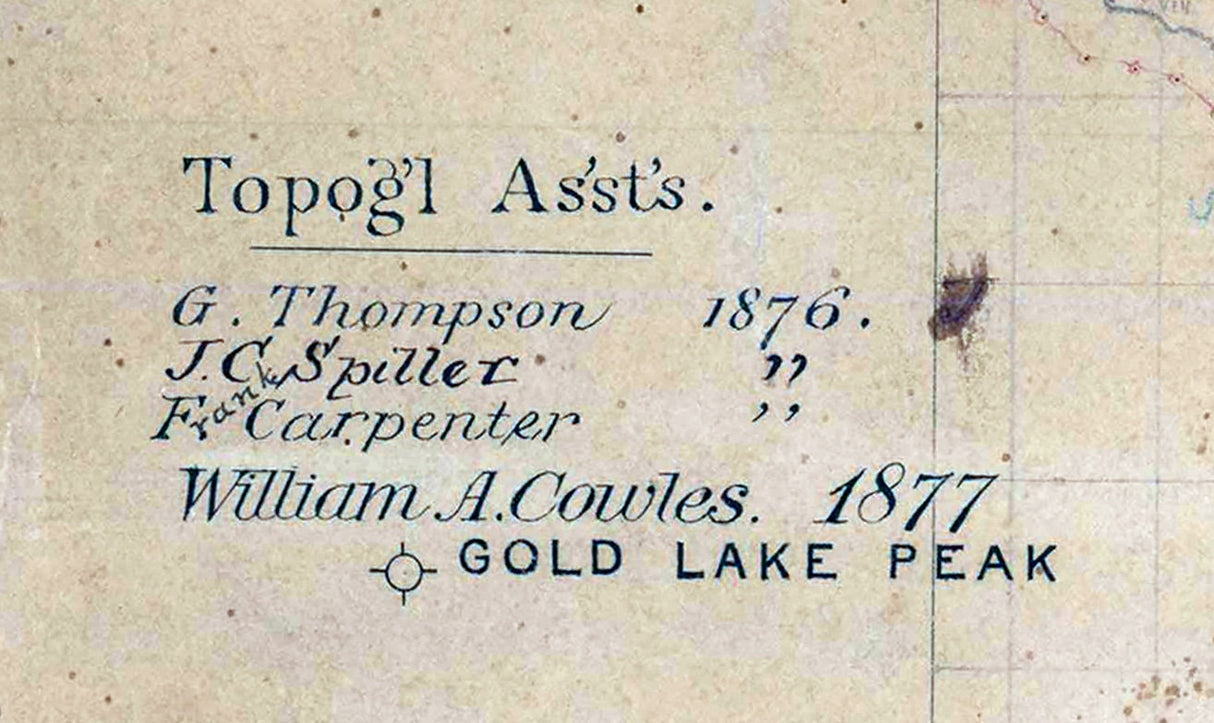 Topog'l Ass't's.
G. Thompson 1876.
J. C. Spiller "
Frank Carpenter "
William A. Cowles. 1877
GOLD LAKE PEAK